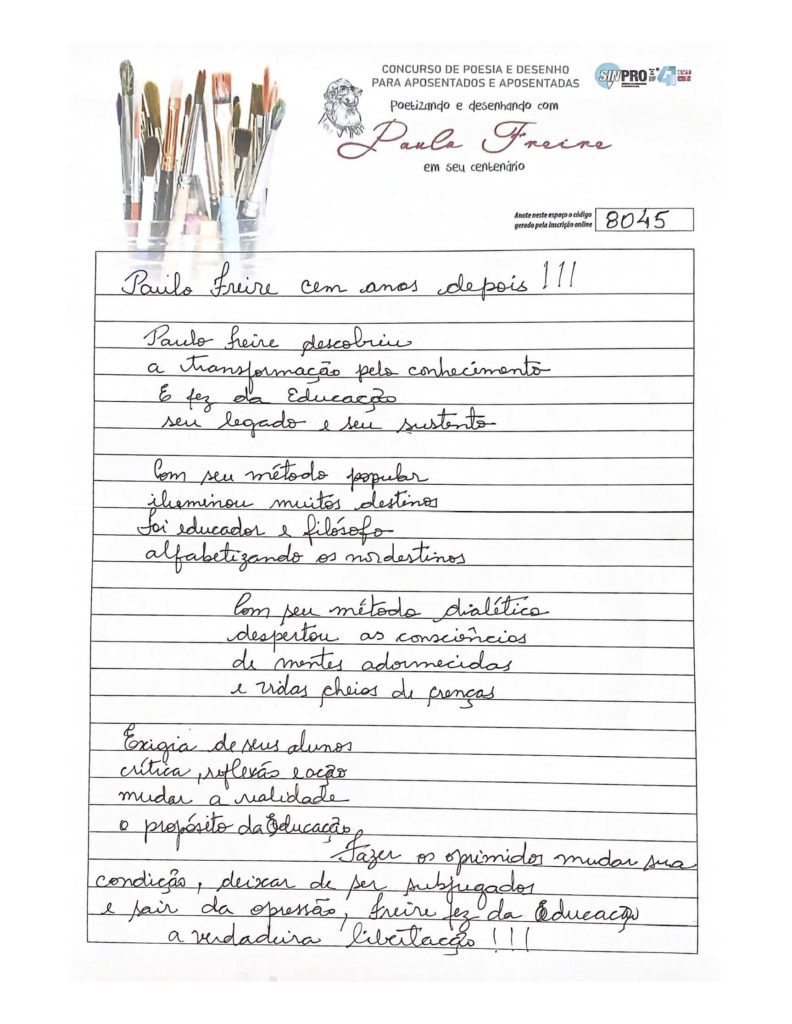 CONCURSO DE POESIA E DESENHO
PARA APOSENTADOS E APOSENTADAS
Poetizando e desenhando com
Paulo Freire
em seu centenário
SINPRO
Anote neste espaço o código
gerado pela inscrição online
8045
Paulo Freire cem anos depois!!!
Paulo Freire descobriu
a transformação pelo conhecimento
E fez da Educação
seu legado e seu sustento
Com seu método popular
iluminou muitos destinos
Foi educador e filósofo
alfabetizando os nordestinos
Com seu método dialético
despertou as consciências
de mentes adormecidas
e vidas cheias de crenças
Exigia de seus alunos
crítica, reflexão e ação
mudar a realidade
o propósito da Educação,
Fazer os oprimidos mudar sua
condição, deixar de ser subjugados
e sair da opressão, Freire fez da Educação
a verdadeira libertação!!!